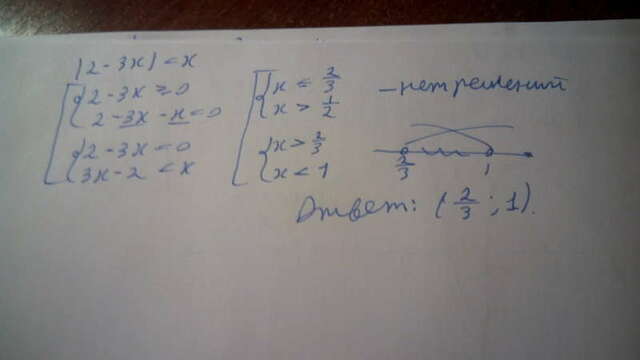 |2-3x| < x
[ { 2-3x ≥ 0
2-3x-x < 0
{ 2-3x < 0
3x-2 < x
[ { x ≤ 2/3
x > 1/2
{ x > 2/3
x < 1
- нет решений
2/3 1
Ответ: (2/3 ; 1).